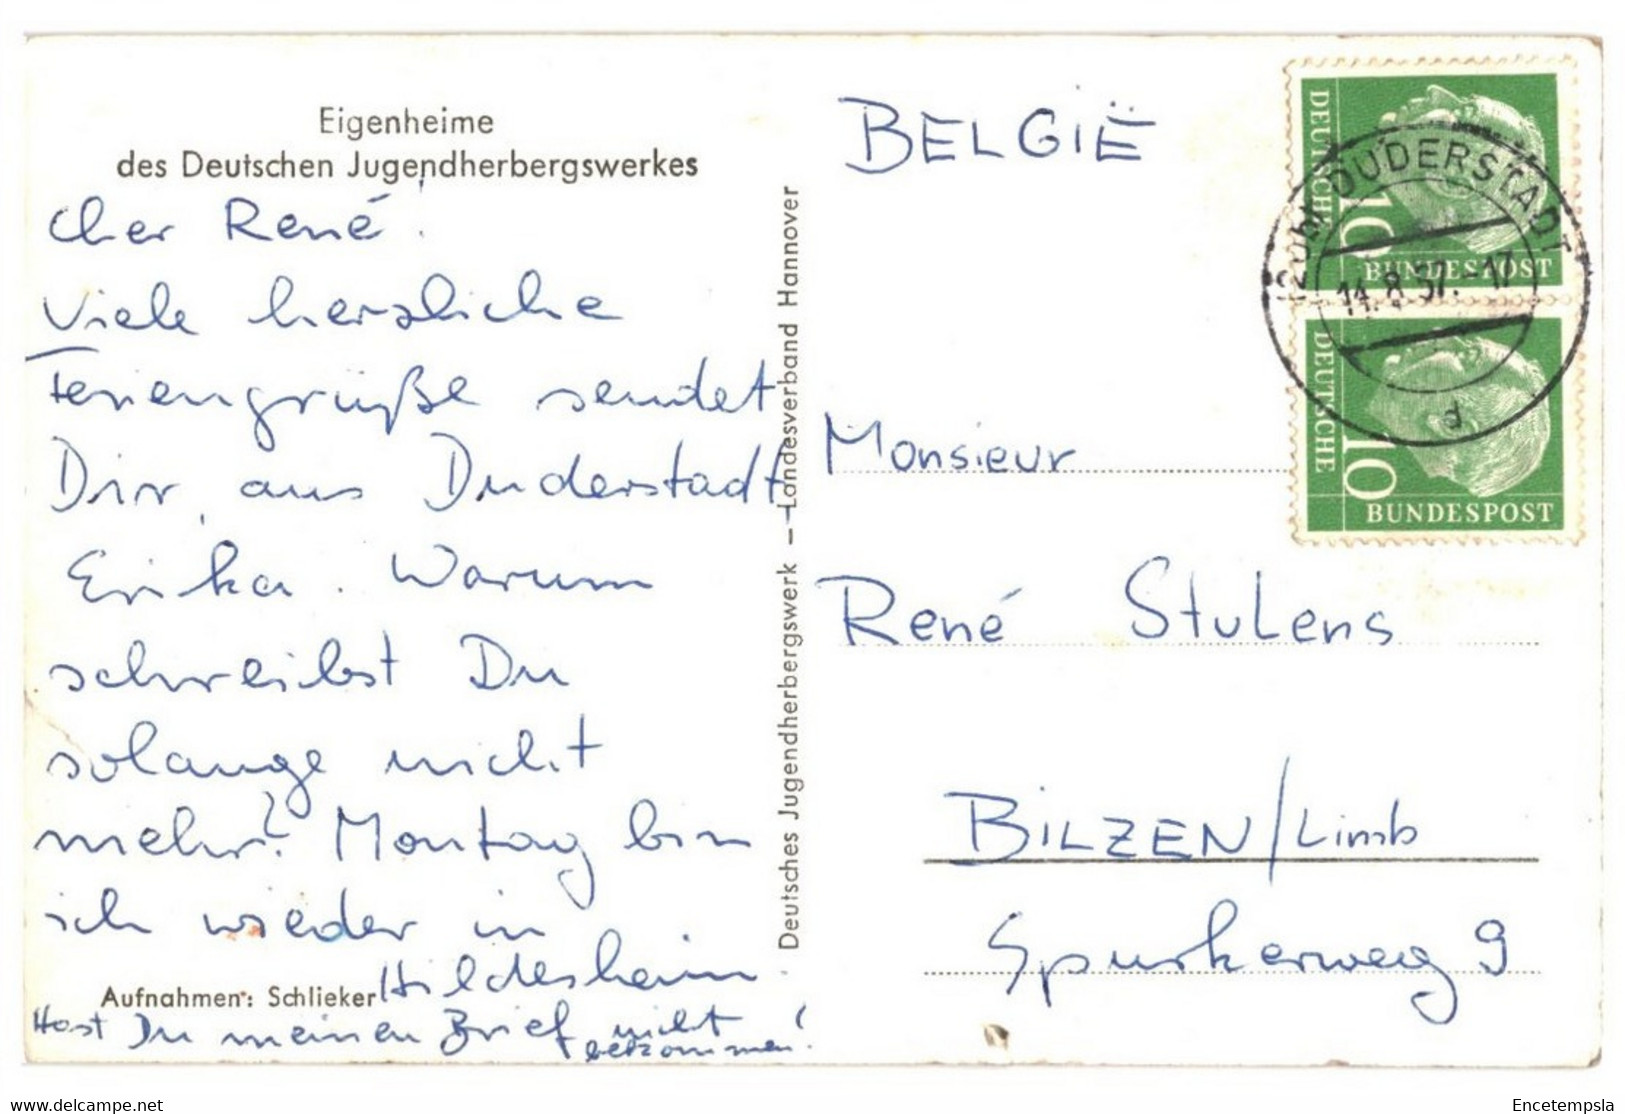 Eigenheime
des Deutschen Jugendherbergswerkes
Cher René!
Viele herzliche
Feriengrüße sendet
Dir aus Duderstadt
Erika. Warum
schreibst Du
solange nicht
mehr? Montag bin
ich wieder in
Hildesheim
Aufnahmen: Schlieker
Hast Du meinen Brief nicht
bekommen?
Deutsches Jugendherbergswerk – Landesverband Hannover
BELGIË
Monsieur
René Stulens
BILZEN/Limb
Spurkerweg 9
DEUTSCHE
10
BUNDESPOST
DEUTSCHE
10
BUNDESPOST
DUDERSTADT
14.8.57.-17
d
www.delcampe.net
Encetempsla